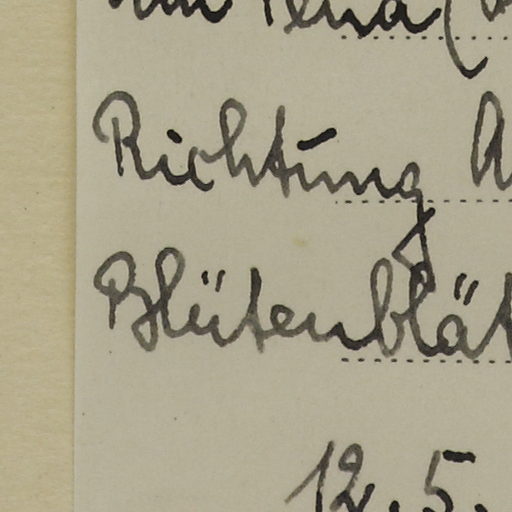 Richtung A
Blütenblät
12.5.